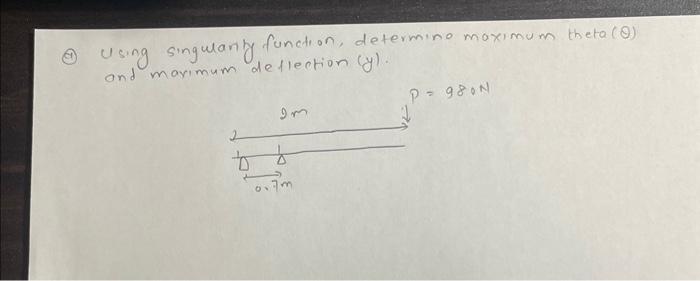 ④ Using singularity function, determine maximum theta (θ)
and maximum deflection (y).
P = 980N
2m
0.7m